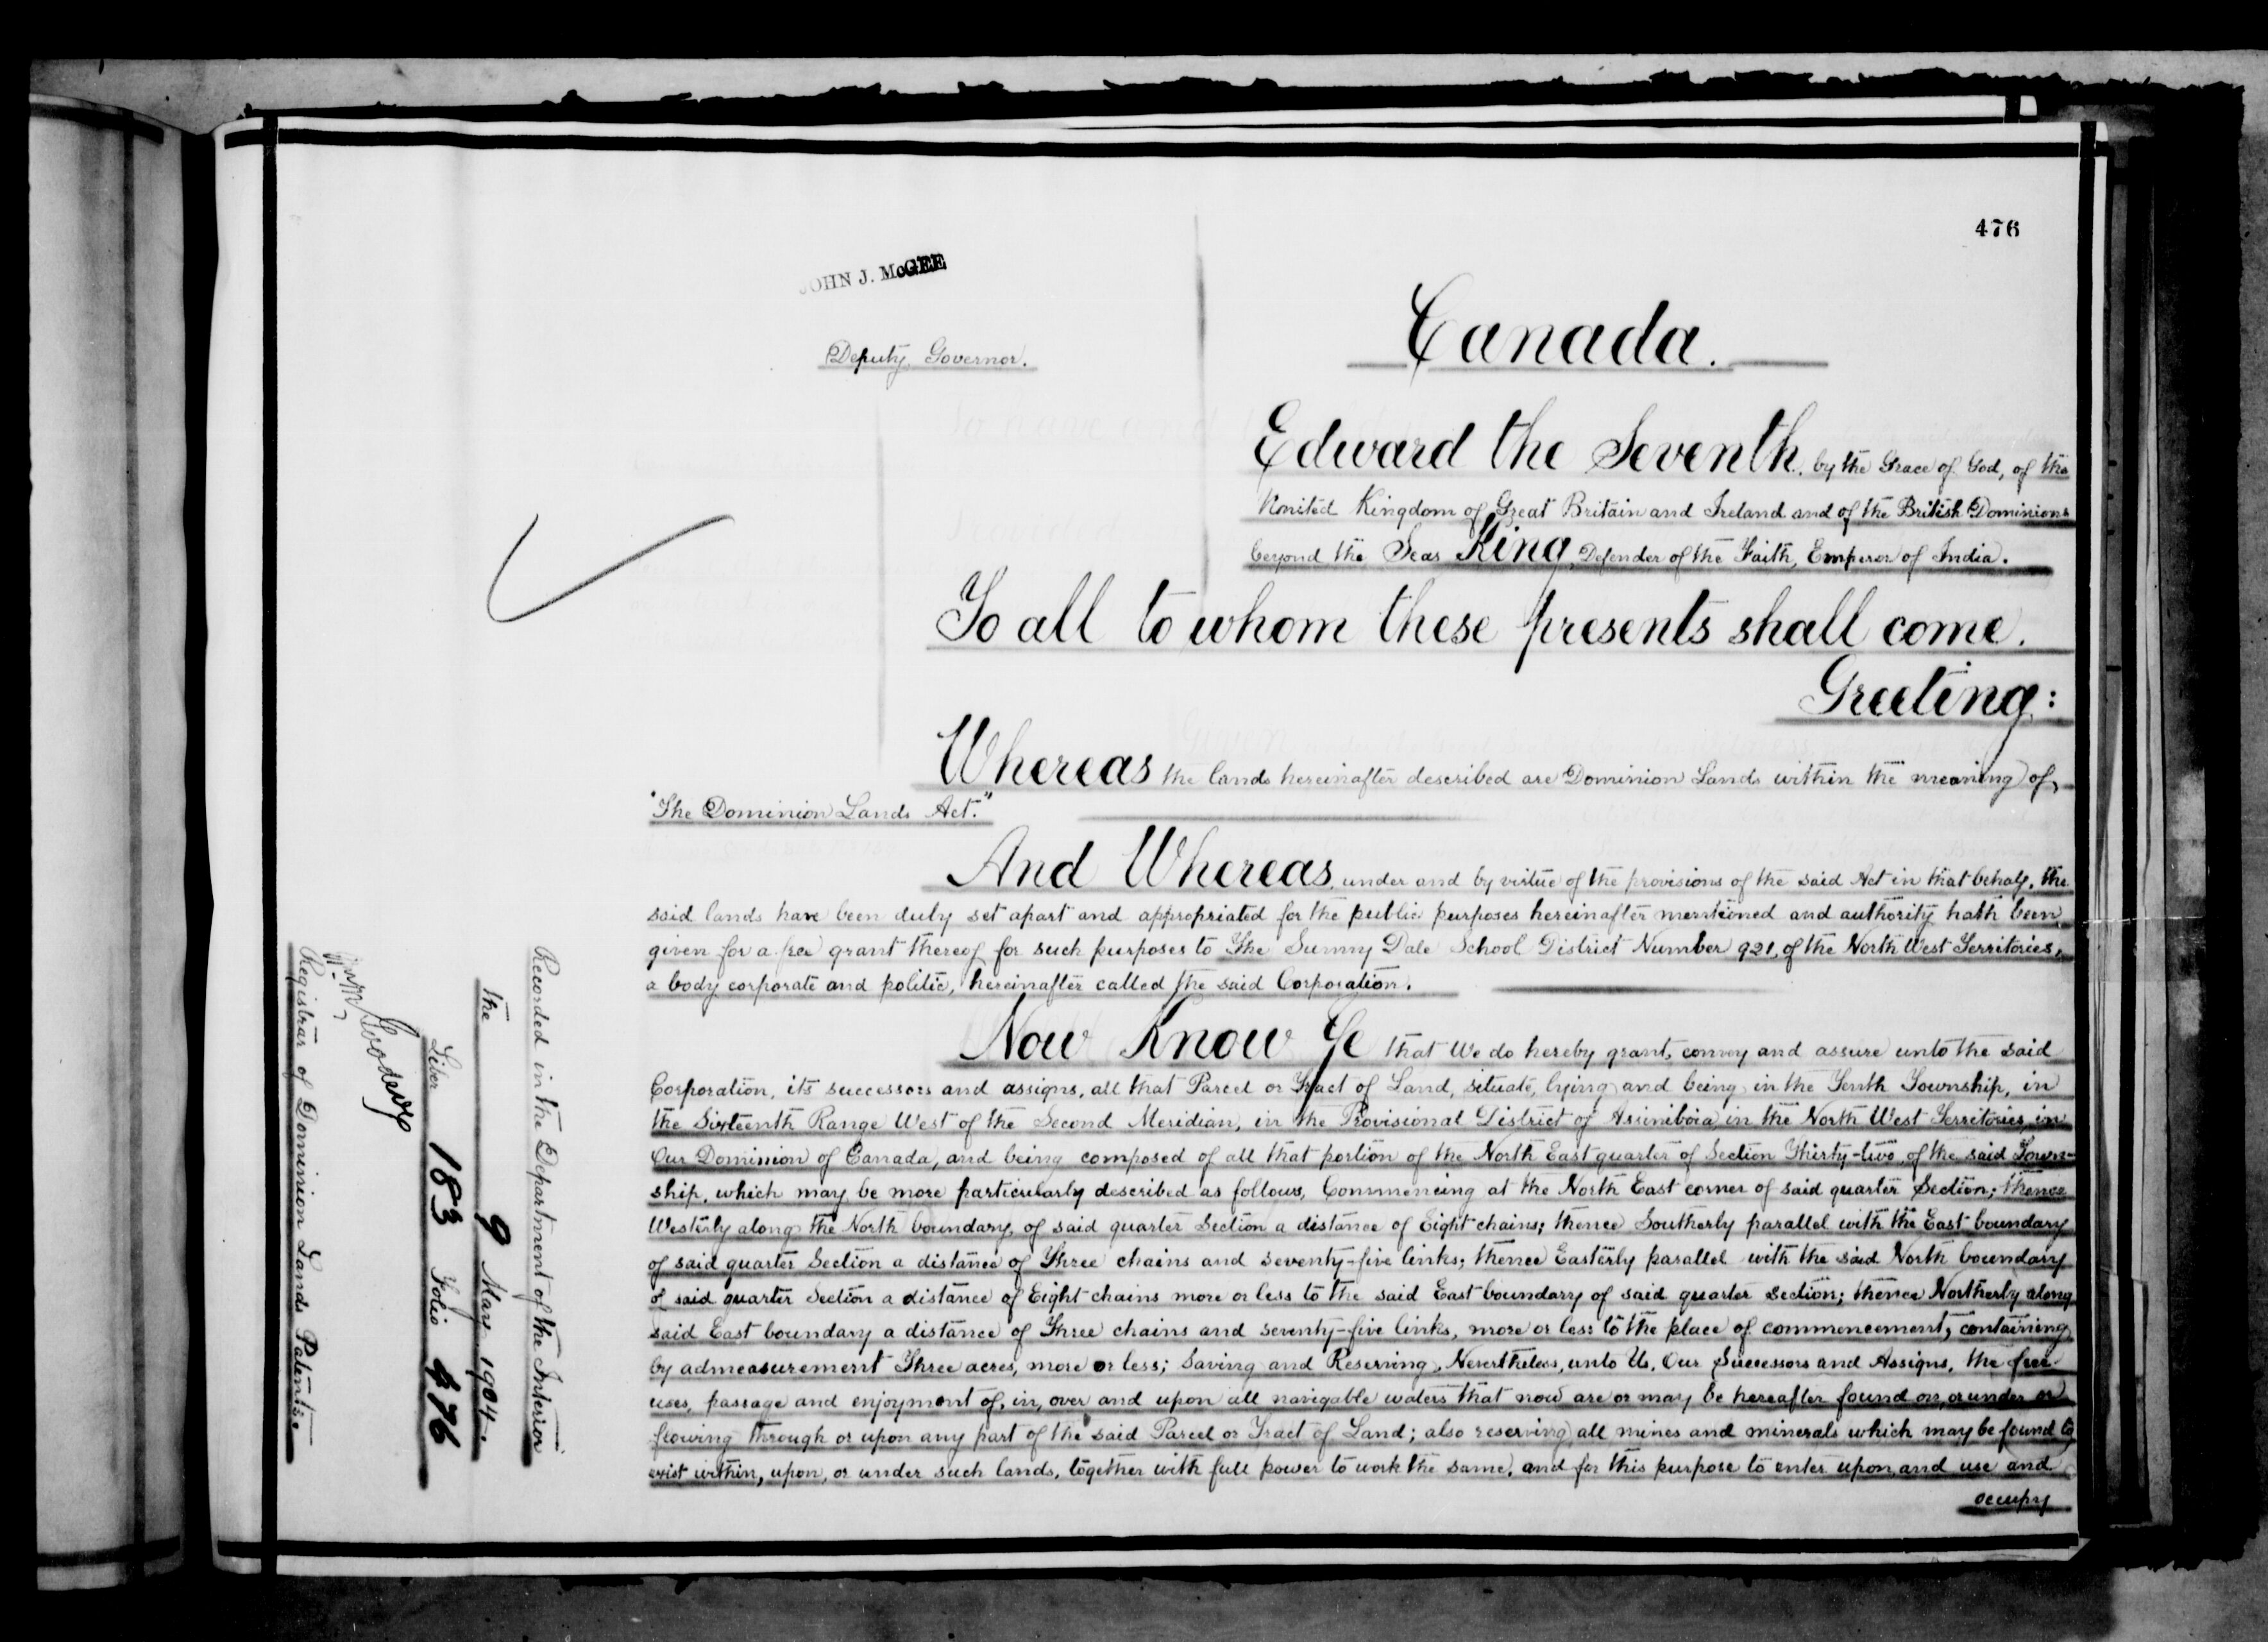 476
JOHN J. McGEE
Deputy Governor.
Canada.
Edward the Seventh, by the Grace of God, of the
United Kingdom of Great Britain and Ireland and of the British Dominions
beyond the Seas King, Defender of the Faith, Emperor of India.
To all to whom these presents shall come.
Greeting:
Whereas the lands hereinafter described are Dominion Lands within the meaning of
"The Dominion Lands Act."
And Whereas, under and by virtue of the provisions of the said Act in that behalf, the
said lands have been duly set apart and appropriated for the public purposes hereinafter mentioned and authority hath been
given for a free grant thereof for such purposes to The Sunny Dale School District Number 921, of the North West Territories,
a body corporate and politic, hereinafter called the said Corporation.
Now Know Ye that We do hereby grant, convey and assure unto the said
Corporation, its successors and assigns, all that Parcel or Tract of Land, situate, lying and being in the Tenth Township, in
the Sixteenth Range West of the Second Meridian, in the Provisional District of Assiniboia in the North West Territories, in
Our Dominion of Canada, and being composed of all that portion of the North East quarter of Section Thirty-two, of the said Town-
ship, which may be more particularly described as follows, Commencing at the North East corner of said quarter Section; thence
Westerly along the North boundary of said quarter Section a distance of Eight chains; thence Southerly parallel with the East boundary
of said quarter Section a distance of Three chains and seventy-five links; thence Easterly parallel with the said North boundary
of said quarter Section a distance of Eight chains more or less to the said East boundary of said quarter section; thence Northerly along
said East boundary a distance of Three chains and seventy-five links, more or less to the place of commencement, containing
by admeasurement Three acres, more or less; Saving and Reserving, Nevertheless, unto Us, Our Successors and Assigns, the free
uses, passage and enjoyment of, in, over and upon all navigable waters that now are or may be hereafter found on, or under or
flowing through or upon any part of the said Parcel or Tract of Land; also reserving all mines and minerals which may be found to
exist within, upon, or under such lands, together with full power to work the same, and for this purpose to enter upon, and use and
occupy
Recorded in the Department of the Interior
the 9 May 1904.
Liber 183 Folio 476
Registrar of Dominion Lands Patents